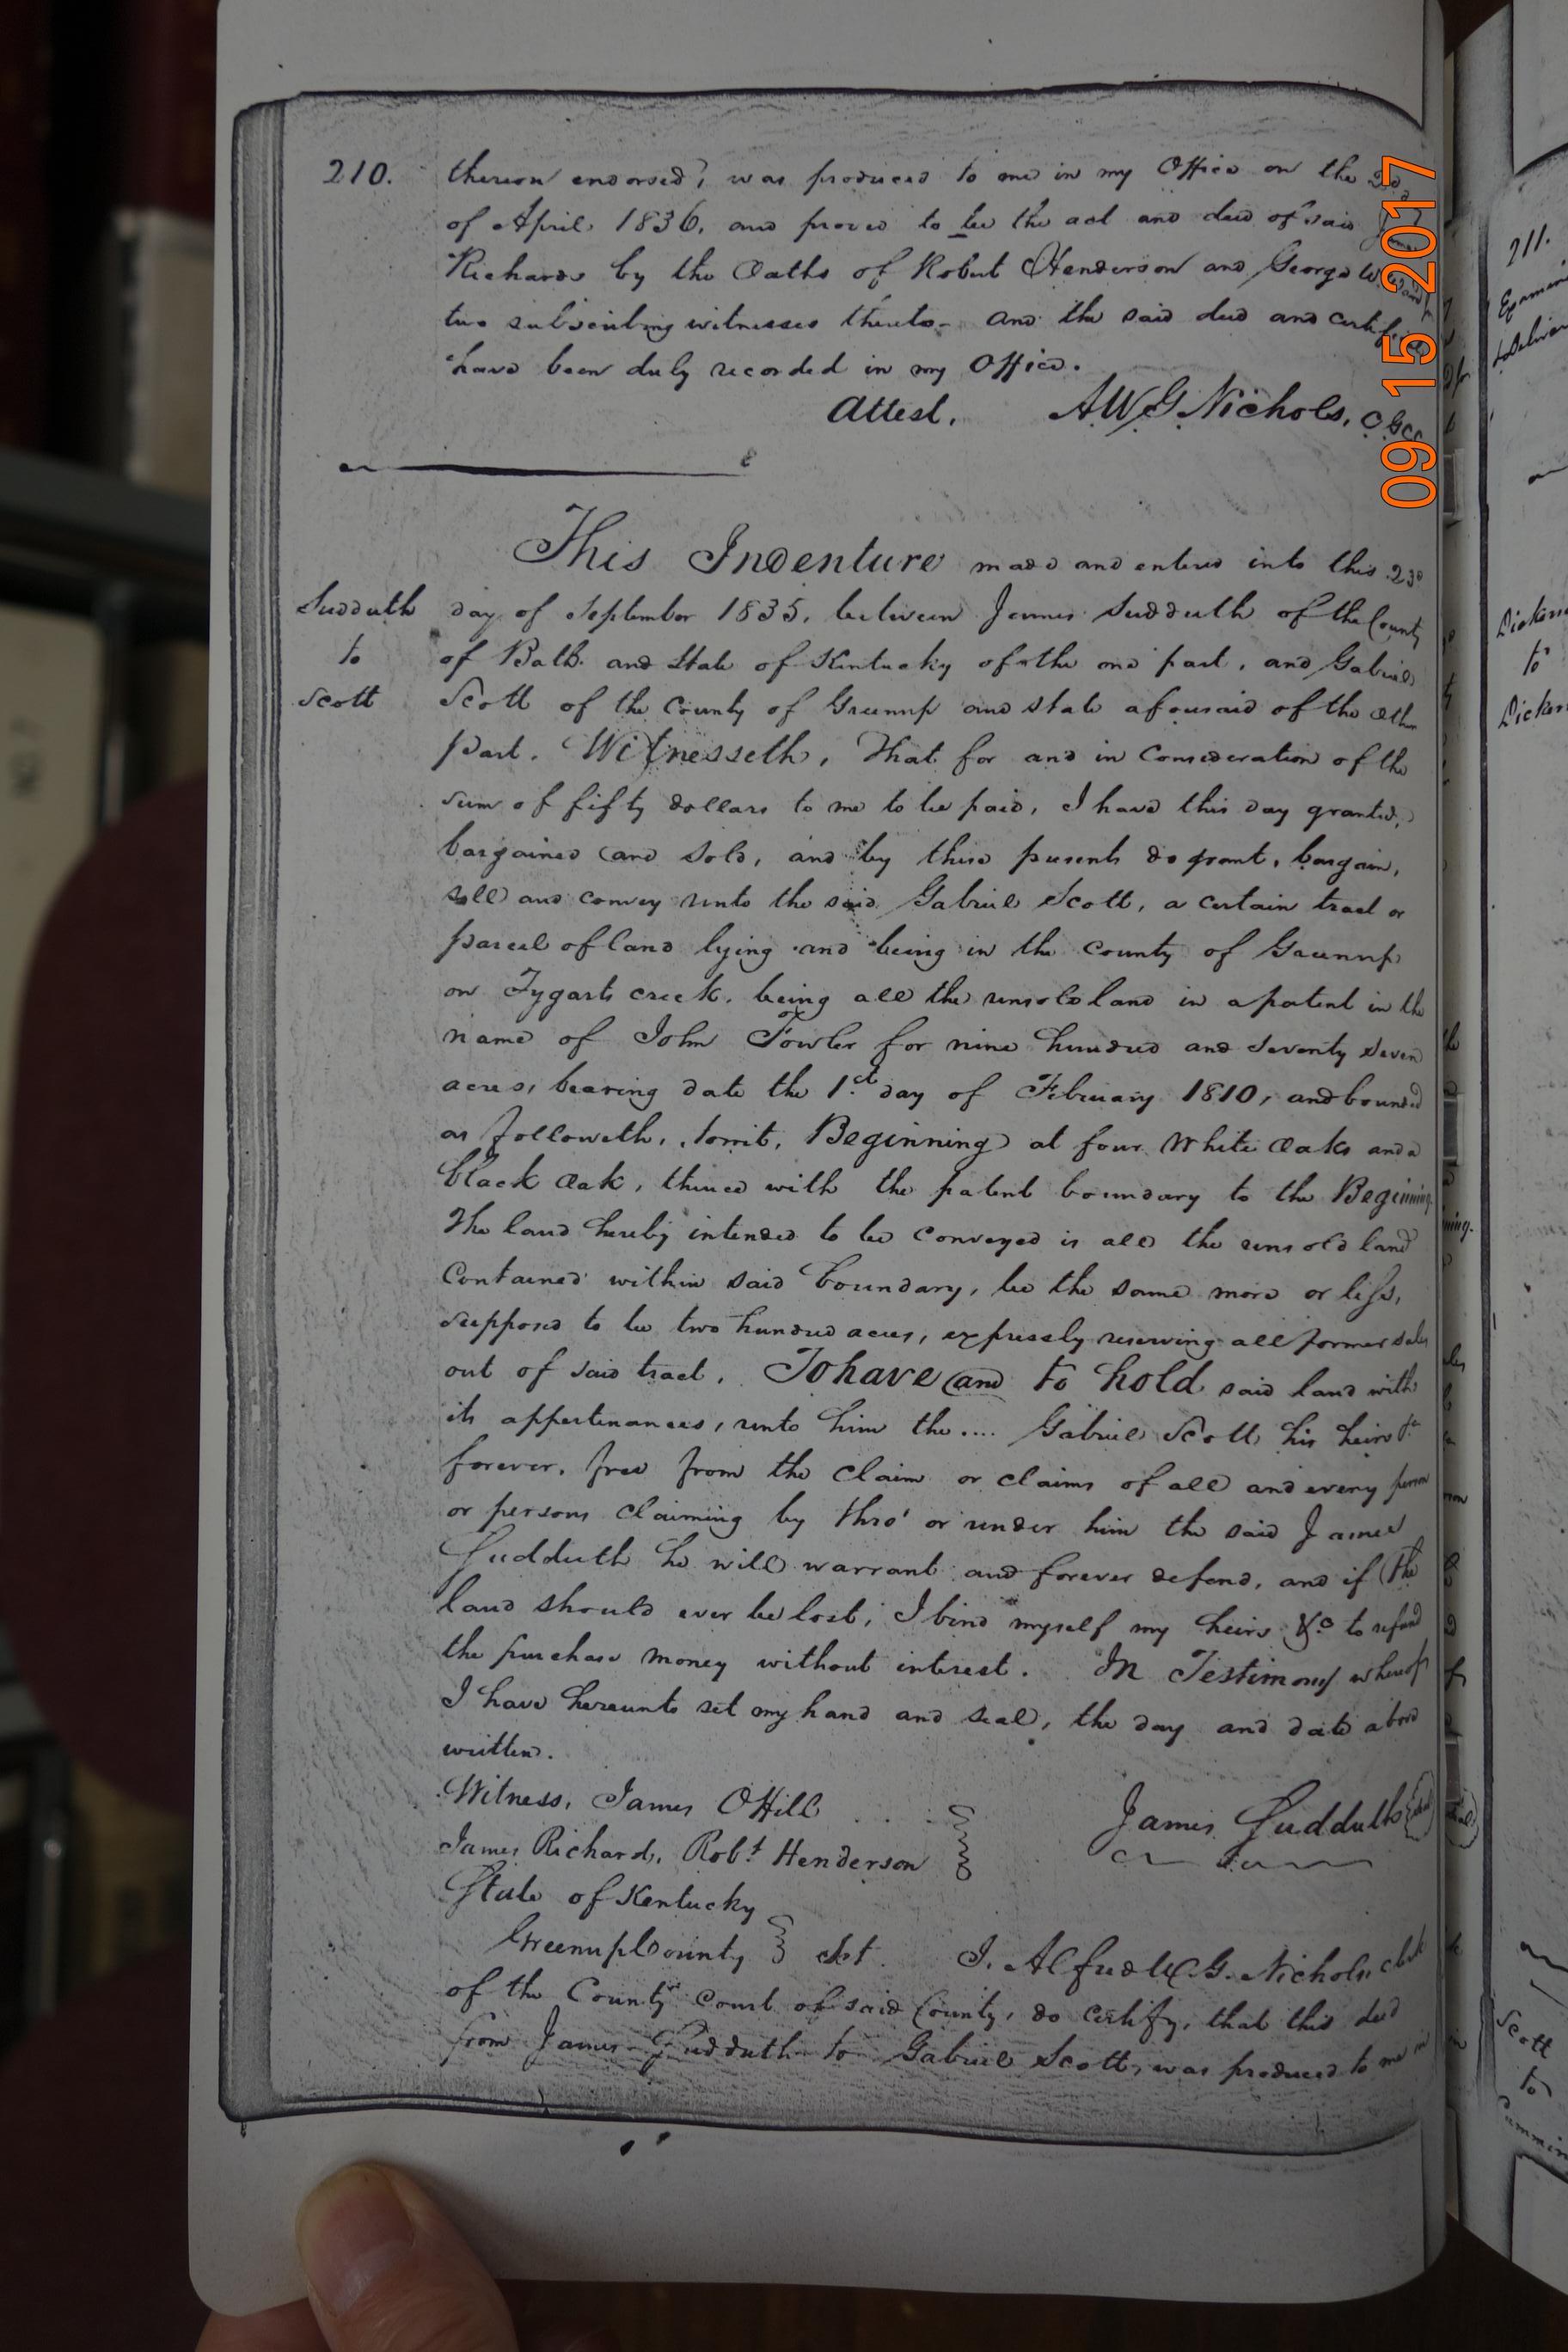 210. thereon endorsed, was produced to me in my Office on the
of April 1836, and proved to be the act and deed of said
Richards by the Oaths of Robert Henderson and George W.
two subscribing witnesses thereto- And the said deed and certificate
have been duly recorded in my Office.
Attest, A.W.G. Nichols,
09 15 2017
This Indenture made and entered into this 23d
Sudduth to Scott
day of September 1835, between James Sudduth of the County
of Bath and State of Kentucky of the one part, and Gabriel
Scott of the County of Greenup and state aforesaid of the other
part. Witnesseth, That for and in Consideration of the
sum of fifty dollars to me to be paid, I have this day granted,
bargained and sold, and by these presents do grant, bargain,
sell and convey unto the said Gabriel Scott, a certain tract or
parcel of land lying and being in the county of Greenup
on Tygarts creek, being all the unsold land in a patent in the
name of John Fowler for nine hundred and seventy seven
acres, bearing date the 1st day of February 1810, and bounded
as followeth, towit, Beginning at four White Oaks and a
black Oak, thence with the patent boundary to the Beginning.
The land hereby intended to be conveyed is all the unsold land
Contained within said boundary, be the same more or less,
supposed to be two hundred acres, expressly reserving all former sales
out of said tract. To have and to hold said land with
its appertinances, unto him the .... Gabriel Scott his heirs &c
forever, free from the claim or claims of all and every person
or persons claiming by thro' or under him the said James
Sudduth he will warrant and forever defend, and if the
land should ever be lost, I bind myself my heirs &c to refund
the purchase money without interest. In Testimony whereof
I have hereunto set my hand and seal, the day and date above
written.
Witness, James O Hill
James Richards, Robt Henderson
James Sudduth (seal)
State of Kentucky
Greenup County Sct. I, Alfred W. G. Nichols, clerk
of the County Court of said County, do certify, that this deed
from James Sudduth to Gabriel Scott, was produced to me in
211.
Dickens
to
Scott
to